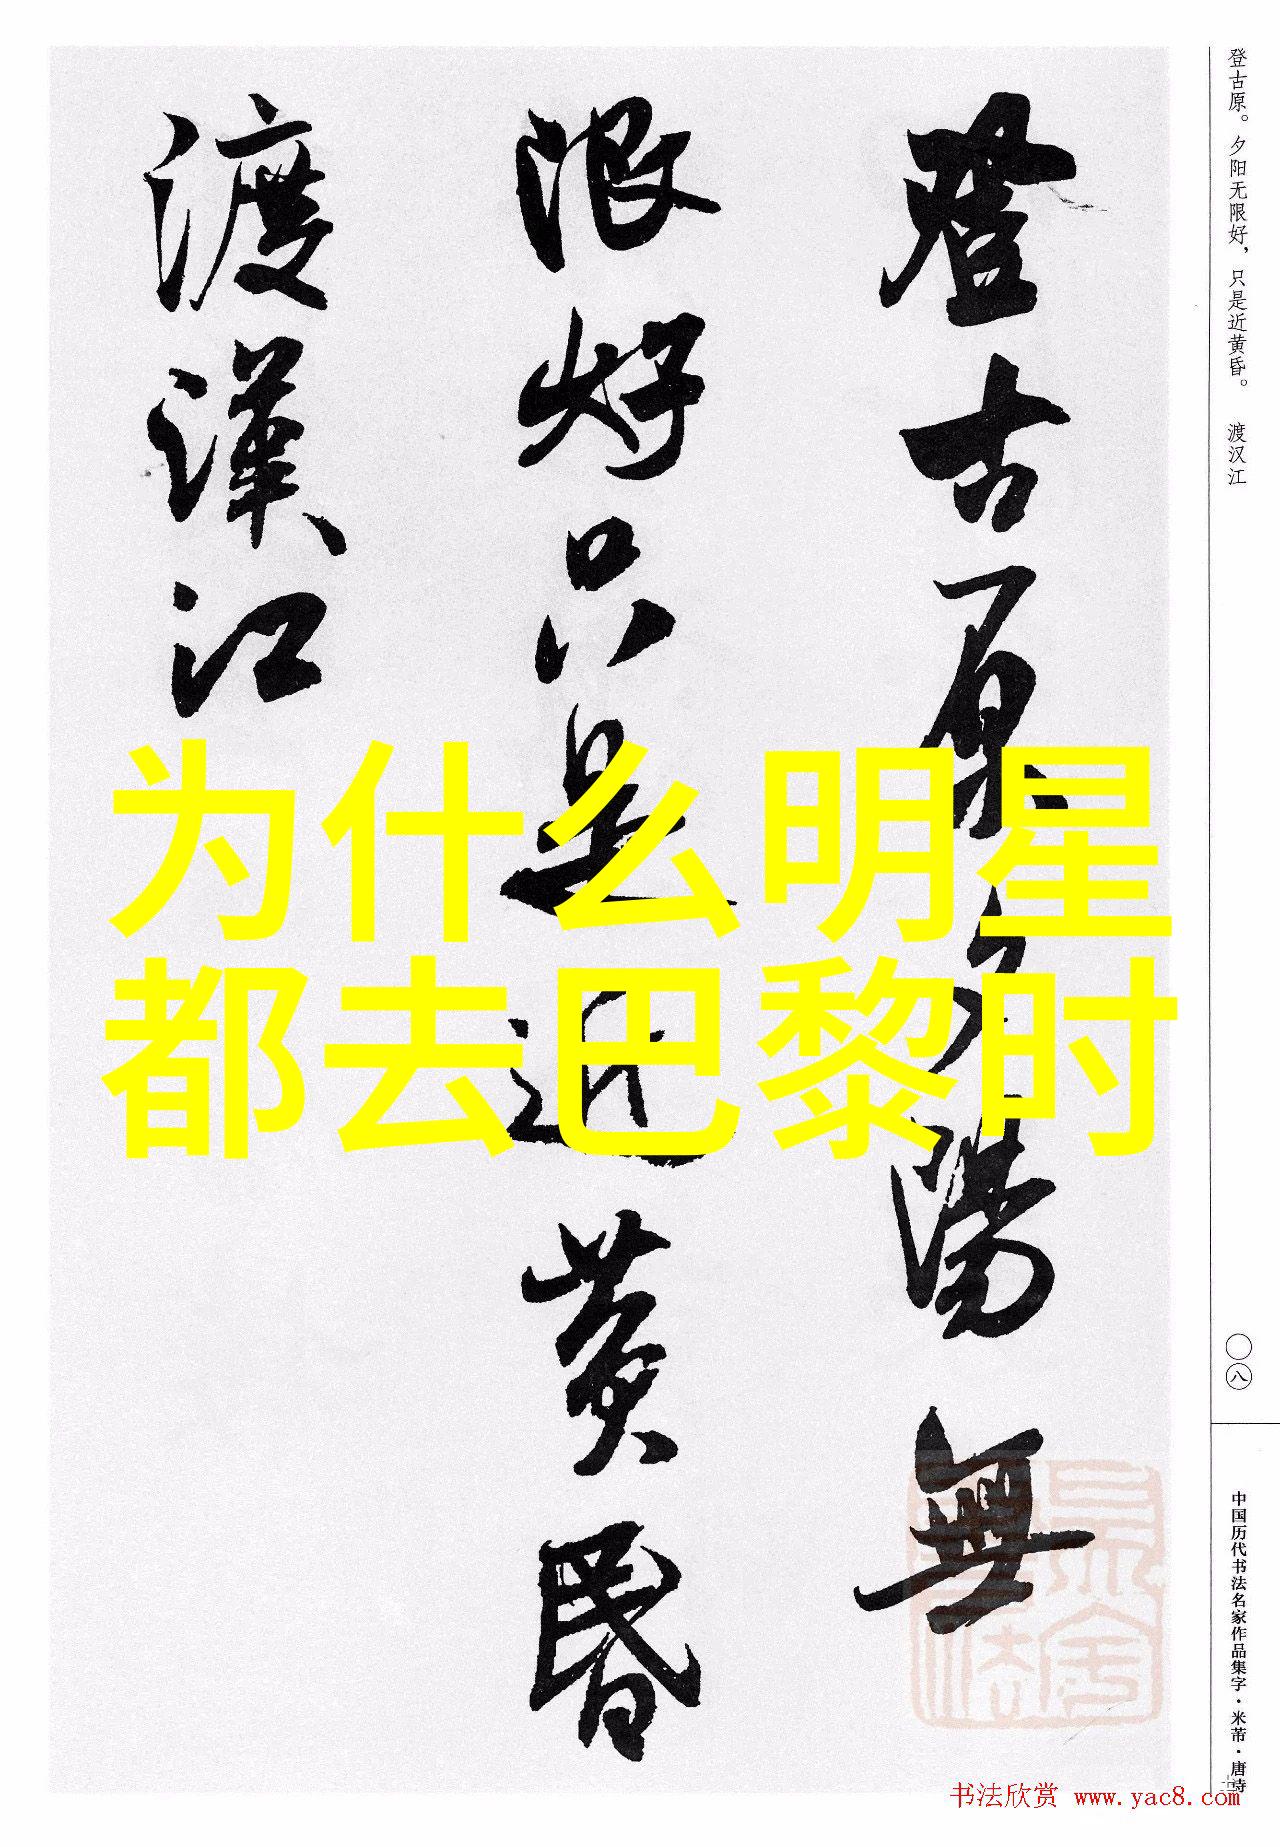 登古原夕陽無
限好只是近黄昏
渡漢江
为什么明星
都去巴黎时
登古原。夕阳无限好，只是近黄昏。 渡汉江
〇八
中国历代书法名家作品集字·米芾·唐诗
书法欣赏 www.yac8.com